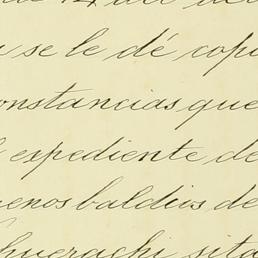 se le dé copi
onstancias que
expediente de
enos baldios de
huerachi, sita